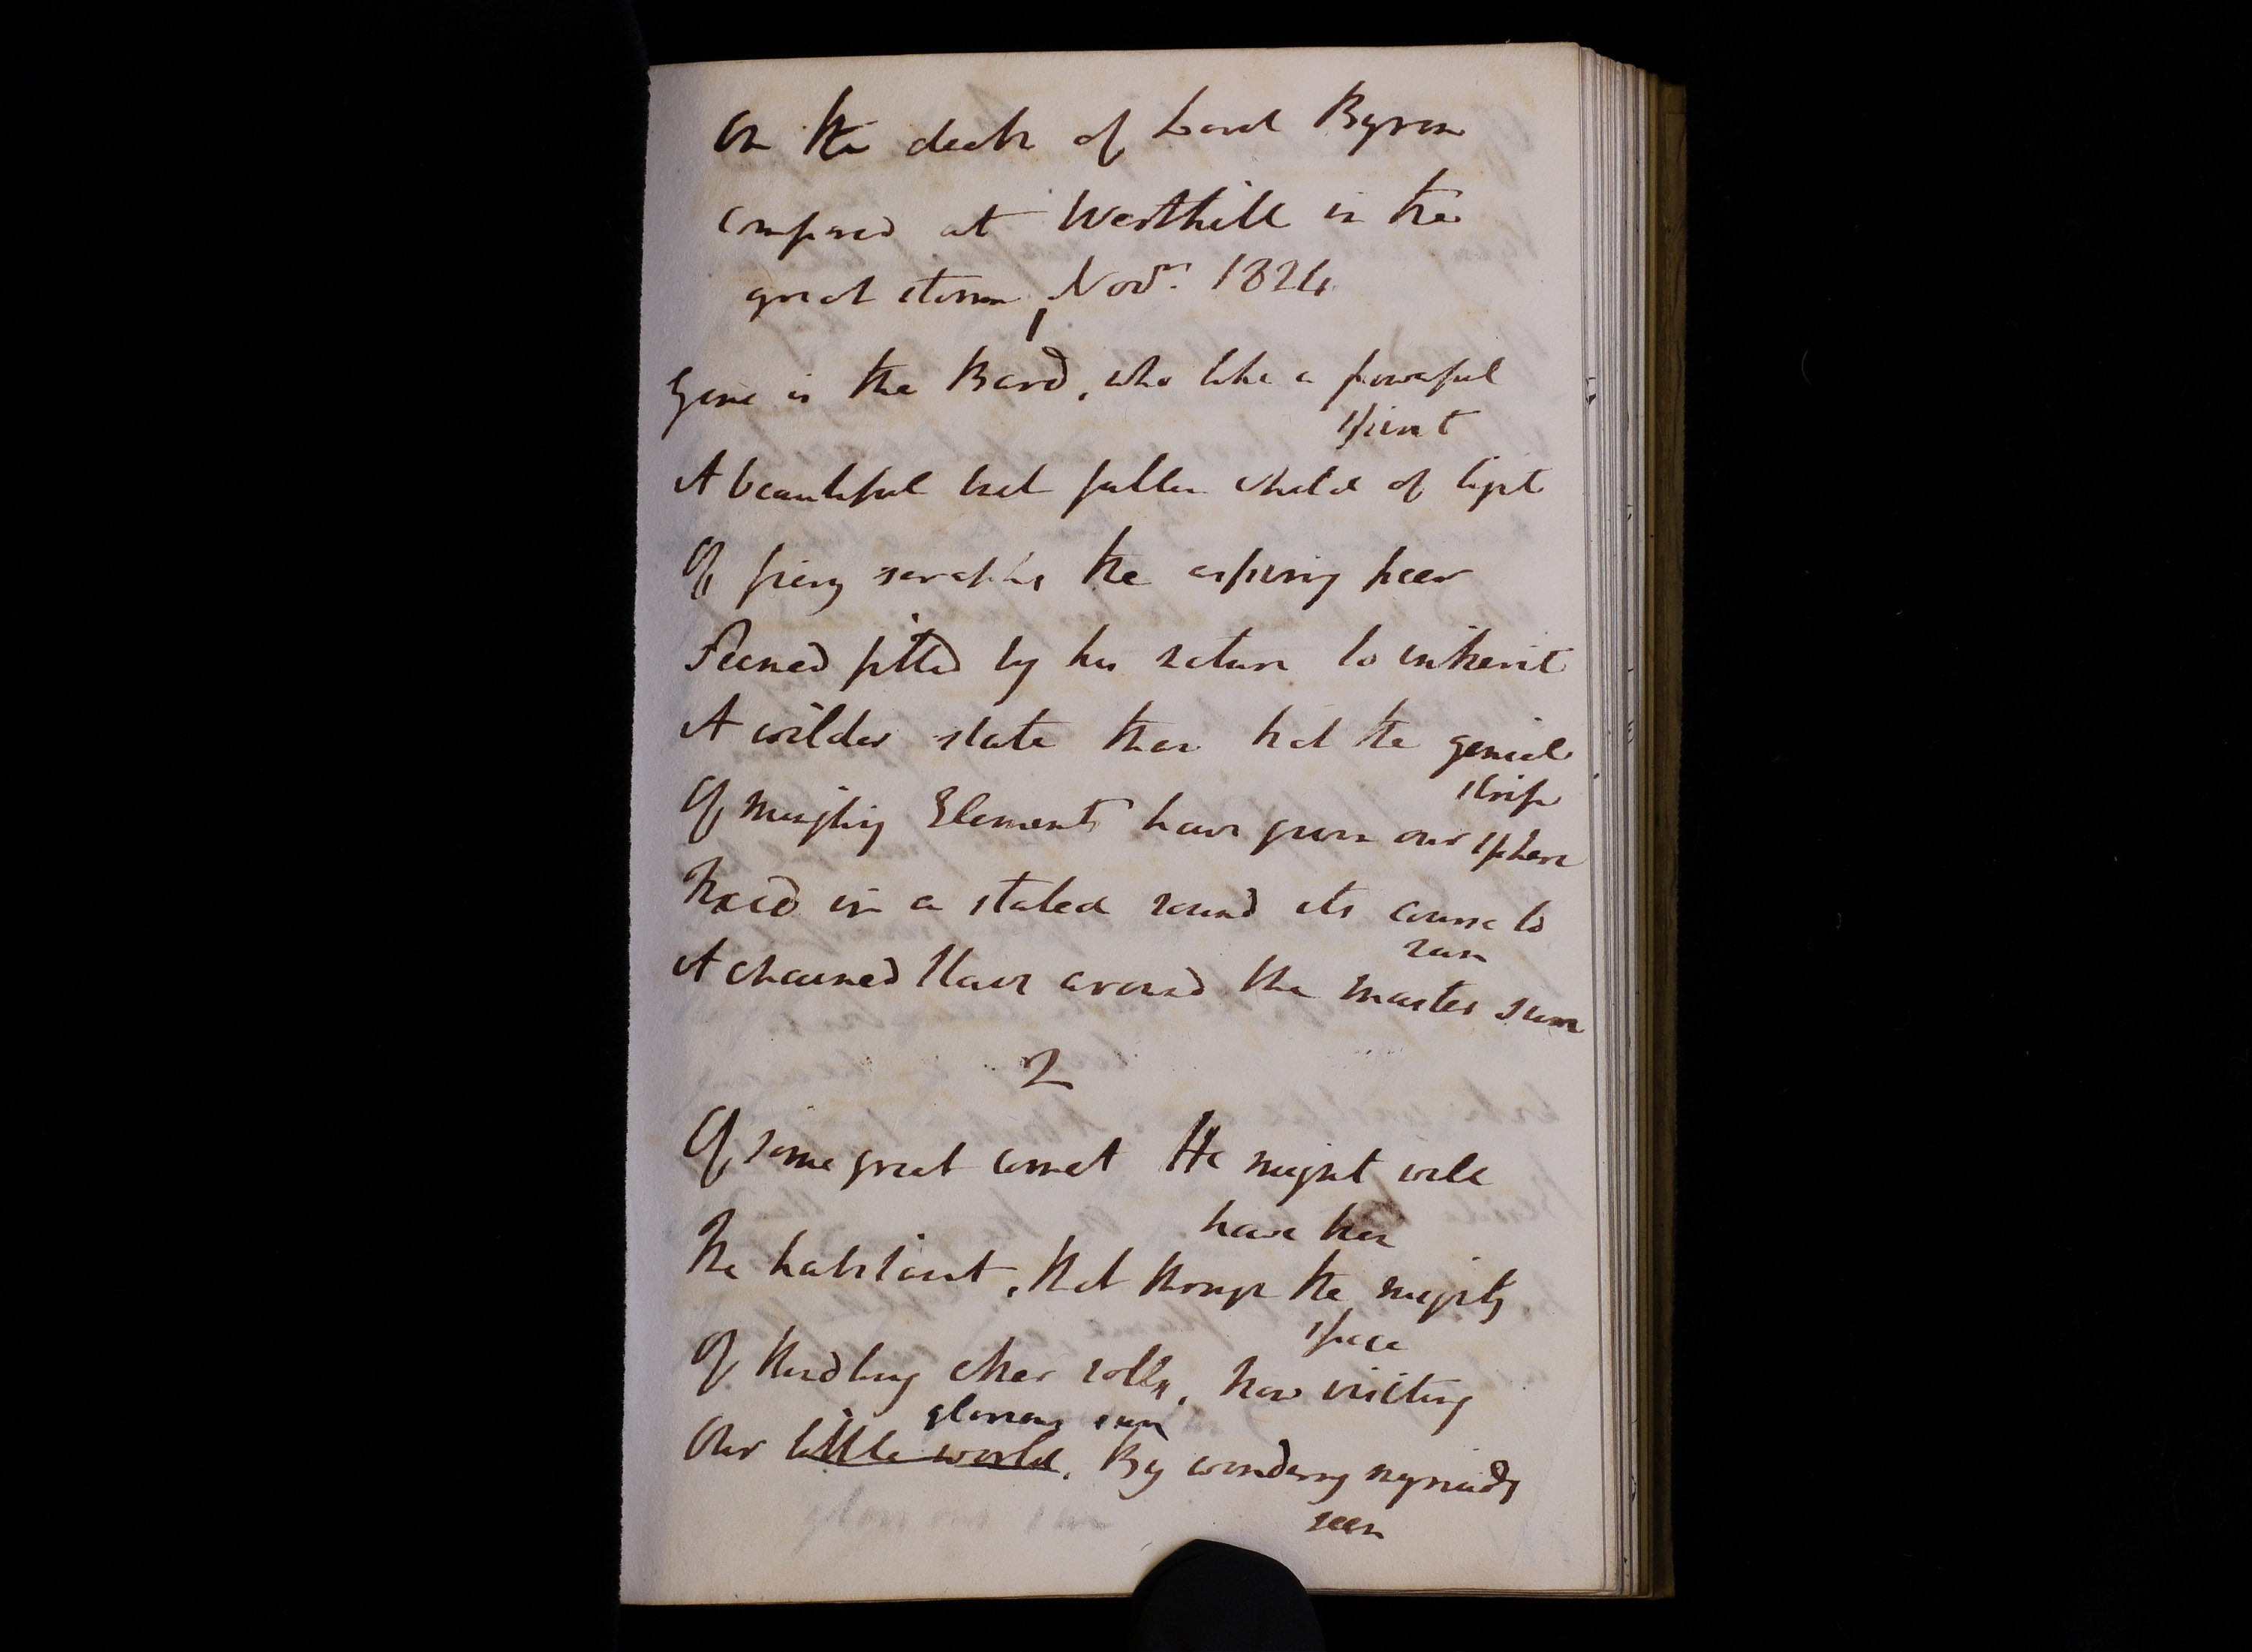 On the death of Lord Byron
composed at Westhill in the
great storm, Novr. 1824
1
Gone is the Bard, who like a powerful
spirit
A beautiful but fallen child of light
Of fiery seraphs the aspiring peer
Seemed fitted by his nature to inherit
A wilder state than that the genial
strife
Of mighty Elements have given our sphere
Fixed in a stated round its course to
run
A chained slave around the master sun
2
Of some great comet He might well
have been
The habitant, that through the mighty
space
Of kindling ether rolls, now visiting
glorious sun
Our little world. By wondering myriads
seen
glorious sun